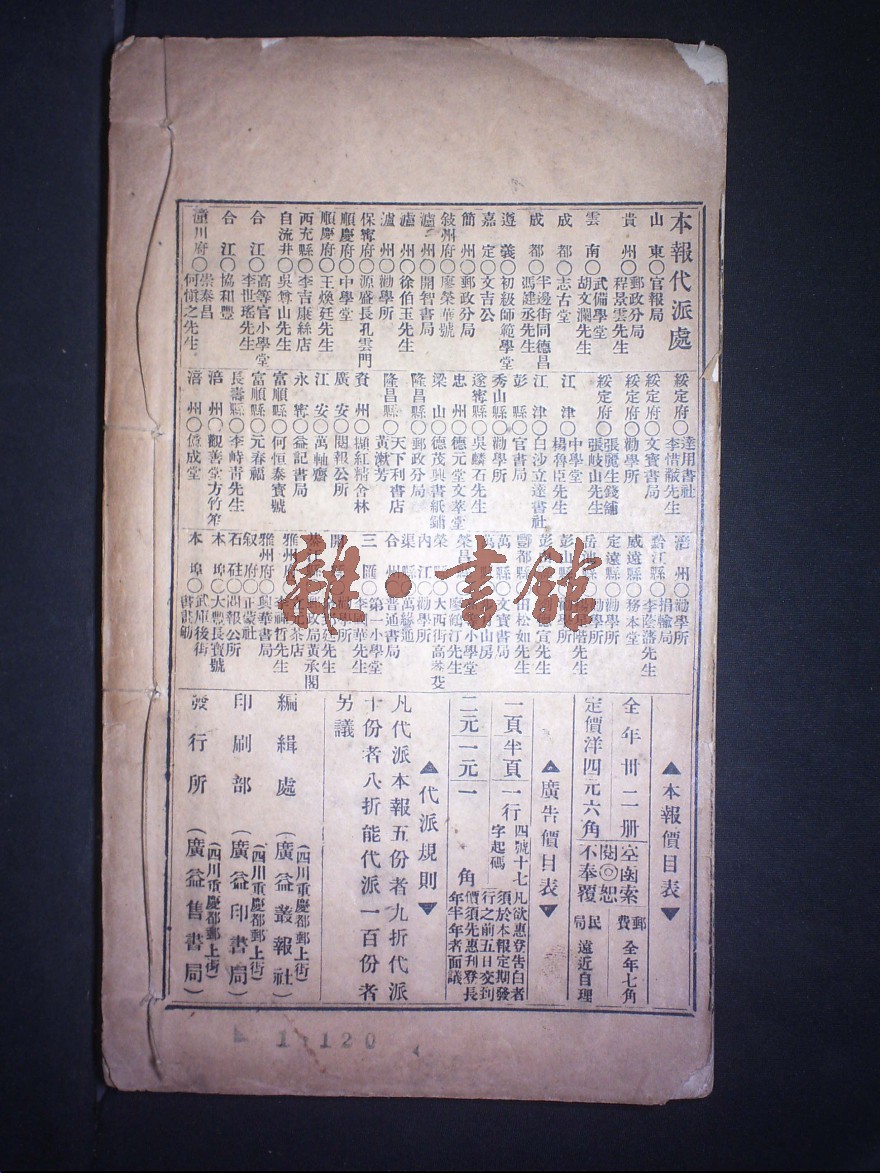 本報代派處
山東○官報局
貴州○郵政分局
程景雲先生
雲南○武備學堂
胡文瀾先生
成都○志古堂
成都○半邊街同德昌
馮建丞先生
遵義○初級師範學堂
嘉定○文吉公
簡州○郵政分局
敍州府○廖榮華號
瀘州○開智書局
瀘州○徐伯玉先生
瀘州○勸學所
保寧府○源盛長孔雲門
順慶府○中學堂
順慶府○王煥廷先生
西充縣○李吉康絲店
自流井○吳尊山先生
合江○高等官小學堂
李世瑤先生
合江○協和豐
潼川府○崇泰昌
何愼之先生
綏定府○達用書社
李惜嚴先生
綏定府○文寶書局
綏定府○勸學所
綏定府○張麗生錢鋪
張岐山先生
江津○中學堂
楊魯臣先生
江津○白沙立達書社
彭縣○官書局
秀山縣○勸學所
遂寧縣○吳麟石先生
忠州○德元堂文萃堂
梁山○德茂興書紙鋪
隆昌縣○郵政分局
隆昌縣○天下利書店
黃漱芳
資州○擷紅精舍林
廣安○閱報公所
江安○萬軸齋
永寧○益記書局
富順縣○何恒泰寶號
富順縣○元春福
長壽縣○李峙靑先生
涪州○觀善堂方竹笮
涪州○信成堂
涪州○勸學所
黔江縣○捐輸局
李蔭藩先生
威遠縣○務本堂
定遠縣○勸學所
勸學所
彭山縣
酆都縣○山松如先生
萬縣○文寶書局
榮昌
榮縣○大西街高
內江○勸學所
渠縣○萬縣通
合州○普通書局
三匯○第一小學堂
李國華先生
郵政局黃承閣
雅州府
雅州府○興華書局
叙府○正蒙社
石砫○閱報公所
本埠○大懋長寶號
本埠○武庫後街
書畫舫
▲本報價目表▼
全年卅二册
定價洋四元六角
空函索
閱◎恕
不奉覆
郵費 全年七角
民局 遠近自理
▲廣告價目表▼
一頁半頁一行
四號十七
字起碼
二元一元一角
凡欲惠登告白者
須於本報定期發
行之前五日交到
價須先惠刋登長
年半年者面議
▲代派規則▼
凡代派本報五份者九折代派
十份者八折能代派一百份者
另議
編緝處（四川重慶都郵上街）
（廣益叢報社）
印刷部（四川重慶都郵上街）
（廣益印書局）
發行所（四川重慶都郵上街）
（廣益售書局）
雜·書館
1 120